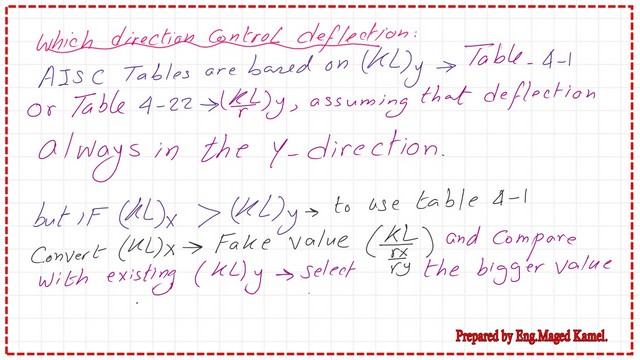 which direction control deflection:
AISC Tables are based on (KL)y → Table-4-1
or Table 4-22 → (KL/r)y, assuming that deflection
always in the Y-direction.
but if (KL)x > (KL)y → to use table 4-1
Convert (KL)x → Fake value (KL/(rx/ry)) and compare
with existing (KL)y → select the bigger value
Prepared by Eng.Maged Kamel.